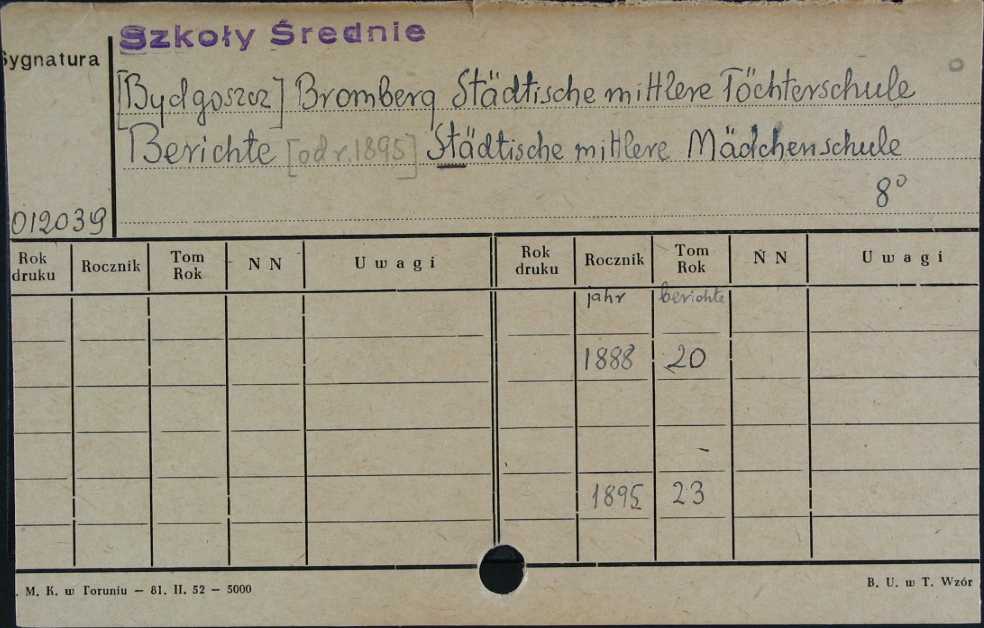 Szkoły Średnie
Sygnatura
[Bydgoszcz] Bromberg Städtische mittlere Töchterschule
Berichte [od r. 1895] Städtische mittlere Mädchenschule
8°
012039
Rok druku Rocznik Tom Rok N N Uwagi Rok druku Rocznik Tom Rok N N Uwagi
jahr berichte
1888 20
1895 23
. M. K. w Toruniu — 81. II. 52 — 5000
B. U. w T. Wzór